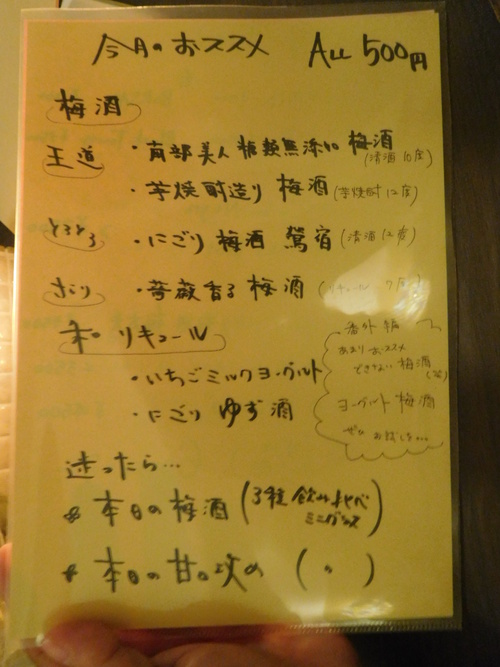 今月のおススメ ALL 500円
梅酒
王道
・南部美人 糖類無添加 梅酒 (清酒 10度)
・芋焼酎造り 梅酒 (芋焼酎 12度)
とろとろ
・にごり 梅酒 鶯宿 (清酒 12度)
・薔薇香る 梅酒 (リキュール 7度)
和 リキュール
・いちごミルクヨーグルト
・にごり ゆず酒
番外編
あまりおススメ
できない梅酒(笑)
ヨーグルト梅酒
ぜひ お試しを…
迷ったら…
* 本日の梅酒 (3種 飲みくらべ
ミニグラス)
* 本日の甘口 (〃)